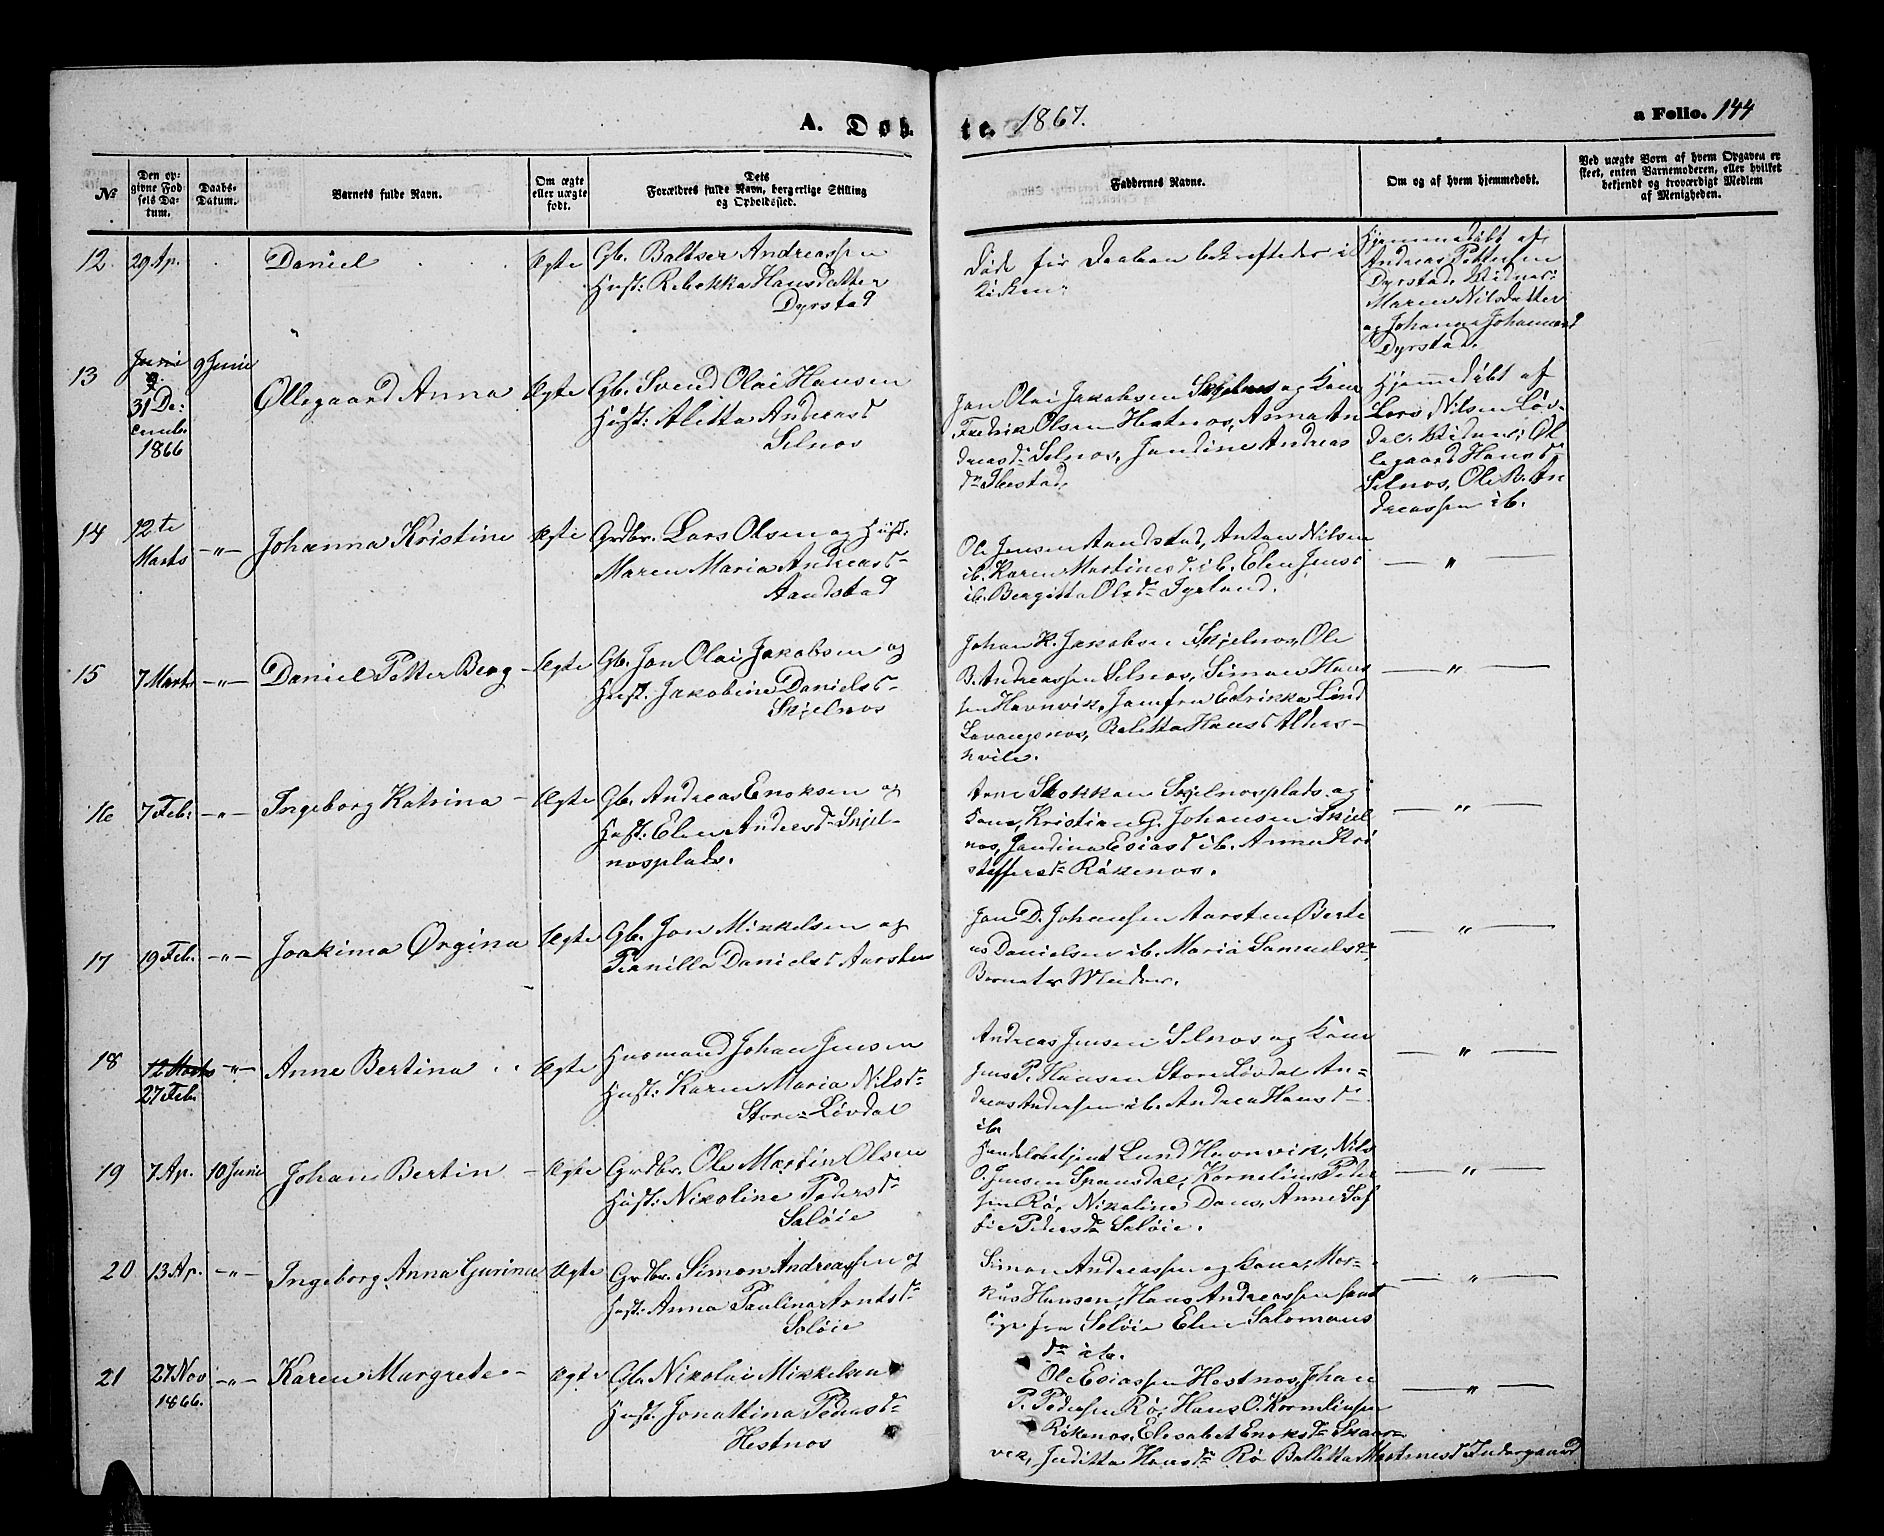 A. Døb
te. 1867.
a Folio. 144
№
Den op-
givne Fød
sels Da-
tum.
Daabs-
Datum.
Barnets fulde Navn.
Om ægte
eller uægte
født.
Dets
Forældres fulde Navn, borgerlige Stilling
og Opholdssted.
Faddernes Navne.
Om og af hvem hjemmedøbt.
Ved uægte Børn af hvem Opgaven er
skeet, enten Barnemoderen, eller hvilket
bekjendt og troværdigt Medlem
af Menigheden.
12.
29 Ap.
Daniel
Ægte
Gb. Baltser Andreassen
Hust: Rebekka Hansdatter
Dyrstad
Døde før Daaben bekræftedes i
Kirken.
Hjemmedøbt af
Andreas Pettersen
Dyrstad. Vidner:
Maren Nilsdatter
og Johanna Johannesd
Dyrstad.
13
31 De:
cember
1866
9 Junie
Øllegaard Anna
Ægte
Gb. Svend Olai Hansen
Hust: Alitta Andreasd
Selnos
Jon Olai Jakobsen Skjelnos og Kone
Fredrik Olsen Hestnos, Anna An
dreasdr Selnos, Jandine Andreas
dr Ibestad.
Hjemmedøbt af
Lars Nilsen Løv-
dal. Vidner: Øl
legaard Hansdr
Selnos, Ole B. An
dreassen ib.
14
12te
Marts
-"-
Johanna Kristine
Ægte
Grdbr. Lars Olsen og Hust:
Maren Maria Andreasd-
Aandstad
Ole Jensen Aandstad, Anton Nilsen
ib. Karen Martinesd. ib. Elen Jensd
ib. Bergitta Olsdr
- " -
15
7 Marts
-"-
Daniel Petter Berg
Ægte
Gb. Jon Olai Jakobsen og
Hust. Jakobine Danielsd-
Skjelnos
Johan K. Jakobsen Skjelnos, Ole
B. Andreassen Selnos, Simon Hans
sen Havnvik, Jomfru Edrikka Lind
Lavangsnos, Baletta Hansd Alders-
hvile.
- " -
16
7 Feb:
-"-
Ingeborg Katrina
Ægte
Gb. Andreas Enoksen og
Hust: Elen Andersdr Skjel-
nosplads.
Arne Stokkan Skjelnosplads og
Kone, Kristian G. Johansen Skjel
nos, Jandina Esiasd ib. Anna Kri
stoffersdr Røkenos.
- " -
17
19 Feb.
-"-
Joakima Ørgina
Ægte
Gb. Jon Mikkelsen og
Pernilla Danielsd Aarsten
Jon D. Johansen Aarsten Berte
us Danielsen ib. Maria Samuelsdr
- " -
18
12 Marts
27 Feb.
-"-
Anne Bertina
Ægte
Husmand Johan Jensen
Hust: Karen Maria Nilsdr
Store-Løvdal
Andreas Jensen Selnos og Kone
Jens P. Hansen Store Løvdal An-
dreas Andersen ib. Andrea Hansdr
ib.
- " -
19
7 Ap.
10 Junie
Johan Bertin
Ægte
Grdbr. Ole Martin Olsen
Hust: Nikoline Pedersdr
Saløie
Handelsbetjent Lund Havnvik, Nils
O. Jensen Spansdal, Kornelius Peder
sen Rø, Nikoline Dans, Anne Sof
fie Pedersdr Saløie.
- " -
20
13 Ap.
-"-
Ingeborg Anna Gurina
Ægte
Grdbr. Simon Andreassen og
Hust: Anna Paulina Arntsdr
Saløie
Simon Andreassen og Kone, Mar-
kus Hansen, Hans Andreassen samt
lige fra Saløie Elen Salomons
dr ib.
- " -
21
27 Nov
1866.
-"-
Karen Margrete
Ægte
Gb. Nikolai Mikkelsen
Hust. Jonattina Pedersd-
Hestnos
Ole Esiassen Hestnos, Johan
P. Pedersen Rø, Hans O. Korneliussen
Røkenos, Elisabet Enoksdr Skaar-
vik, Juditta Hansdr Rø Balletta Martinesd Indergaard
- " -